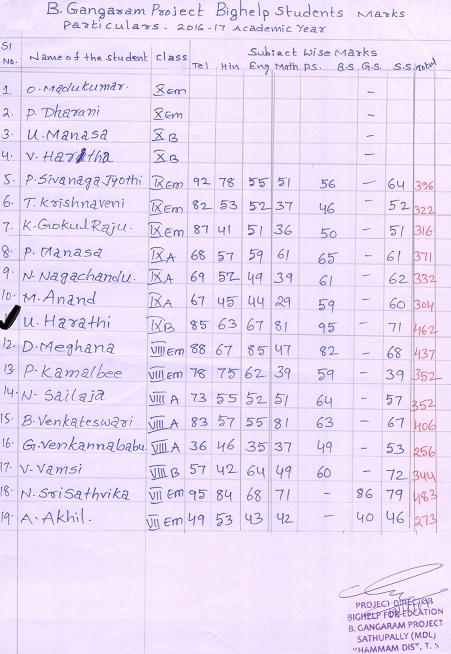 B. Gangaram Project Bighelp Students Marks
Particulars. 2016-17 Academic Year
Sl No. Name of the student Class Subject Wise Marks
Tel Hin Eng Math P.S. B.S G.S. S.S Total
1. O. Madukumar. X Em -
2. P. Dharani X Em -
3. U. Manasa X B -
4. V. Haritha X B -
5. P. Sivanaga Jyothi IX Em 92 78 55 51 56 - 64 396
6. T. Krishnaveni IX Em 82 53 52 37 46 - 52 322
7. K. Gokul Raju. IX Em 87 41 51 36 50 - 51 316
8. P. Manasa IX A 68 57 59 61 65 - 61 371
9. N. Nagachandu. IX A 69 52 49 39 61 - 62 332
10. M. Anand IX A 67 45 44 29 59 - 60 304
U. Harathi IX B 85 63 67 81 95 - 71 462
12. D. Meghana VIII Em 88 67 85 47 82 - 68 437
13. P. Kamalbee VIII Em 78 75 62 39 59 - 39 352
14. N. Sailaja VIII A 73 55 52 51 64 - 57 352
15. B. Venkateswari. VIII A 83 57 55 81 63 - 67 406
16. G. Venkannababu. VIII A 36 46 35 37 49 - 53 256
17. V. Vamsi VIII B 57 42 64 49 60 - 72 344
18. N. Sri Sathvika VII Em 95 84 68 71 - 86 79 483
19. A. Akhil. VII Em 49 53 43 42 - 40 46 273
PROJECT DIRECTOR
BIGHELP FOR EDCATION
B. GANGARAM PROJECT
SATHUPALLY (MDL)
KHAMMAM DIST, T.S